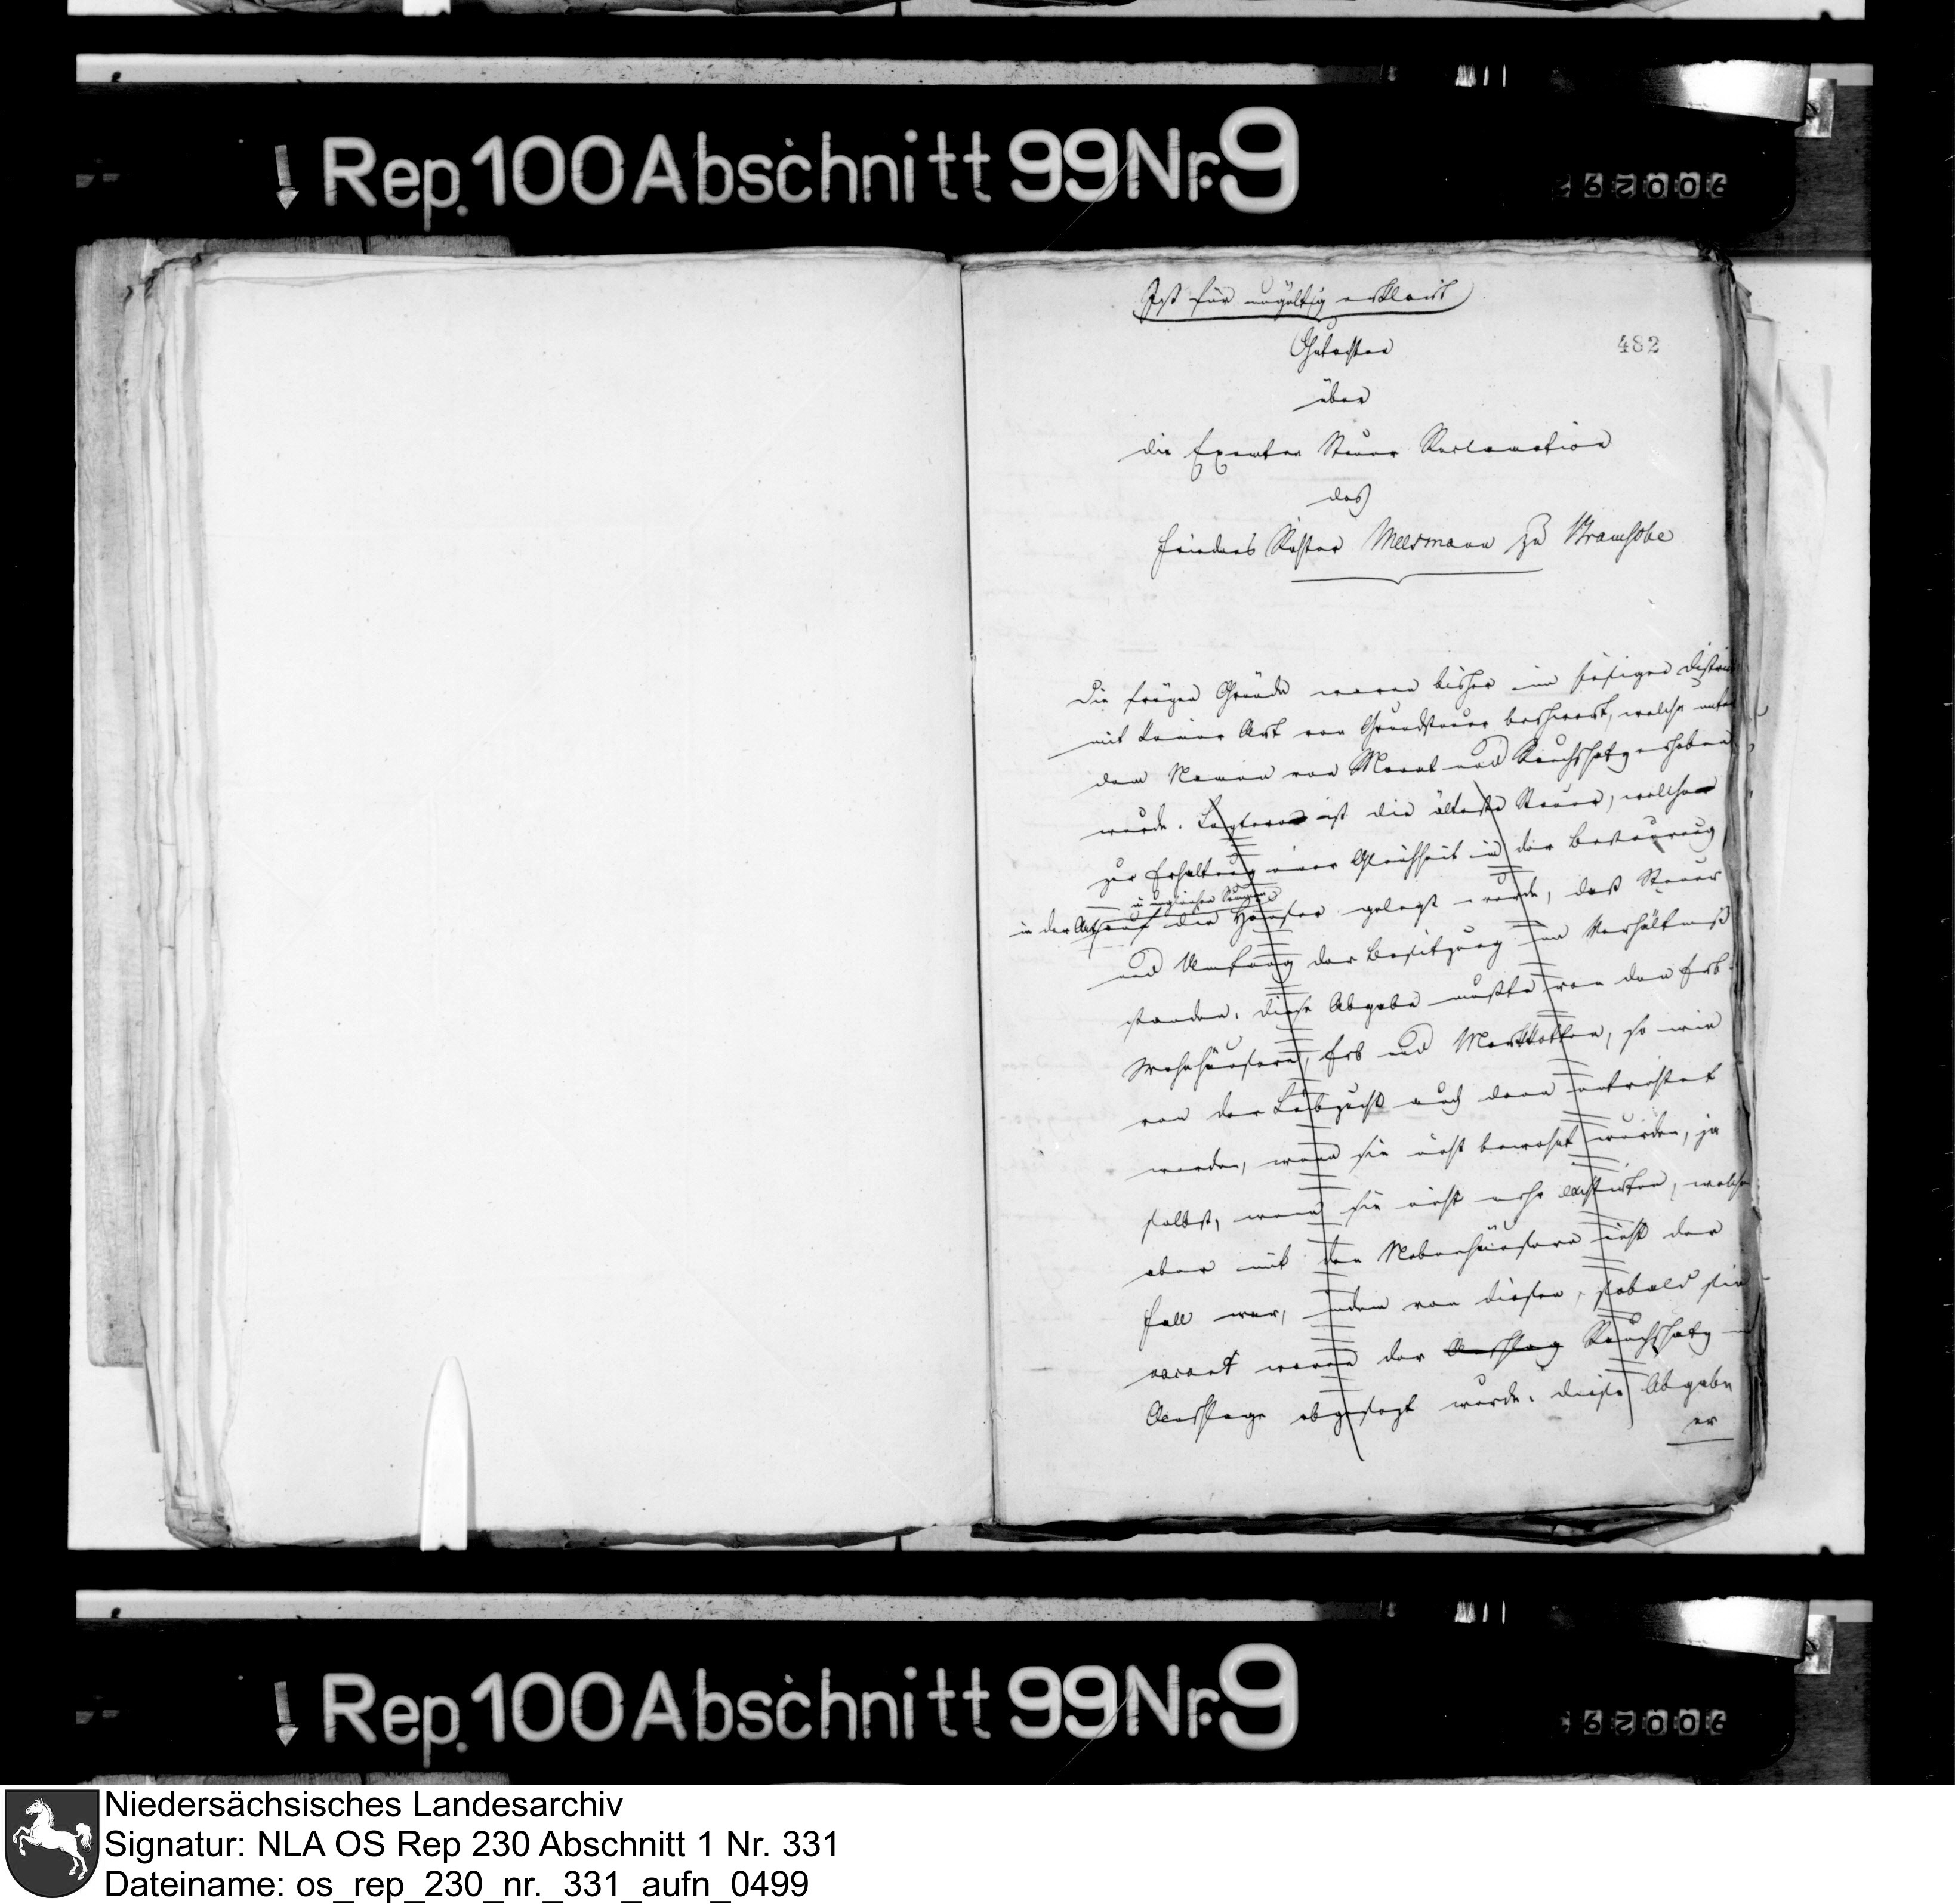 Rep. 100 Abschnitt 99 Nr. 9
900296
Ist für ungültig erklärt
482
Gutachten
über
die Exemten Steuer Reclamation
des
Meesmann zu Bramsche
Die Gründe waren bisher im hiesigen District
mit keiner Art von Grundsteuer beschwert, welche unter
dem Namen von Monat und Rauchschatz erhoben
wurde. Letzterer ist die älteste Steuer, welche
zur Erhaltung einer Gleichheit in der Besteurung
in der Art auf die Häuser gelegt wurde, daß Steuer
und Umfang der Besitzung im Verhältniß
standen. Diese Abgabe mußte von den Erb-
wohnhäusern, Erb und Markkotten, so wie
von der Leibzucht auch dann entrichtet
werden, wenn sie nicht bewohnt wurden, ja
selbst, wenn sie nicht mehr existirten, welches
aber mit den Nebenhäusern nicht der
Fall war, indem von diesen, sobald sie
vacant waren der Rauchschatz in
Ausschlage abgesetzt wurde. Diese Abgabe
er
Rep. 100 Abschnitt 99 Nr. 9
Niedersächsisches Landesarchiv
Signatur: NLA OS Rep 230 Abschnitt 1 Nr. 331
Dateiname: os_rep_230_nr._331_aufn_0499